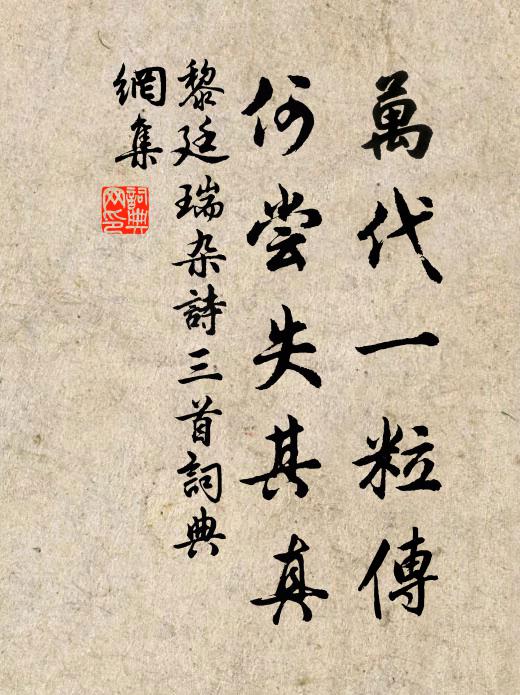 萬代一粒傳
何尝失其真
黎廷瑞杂詩三首詞典
網集
詞典网印